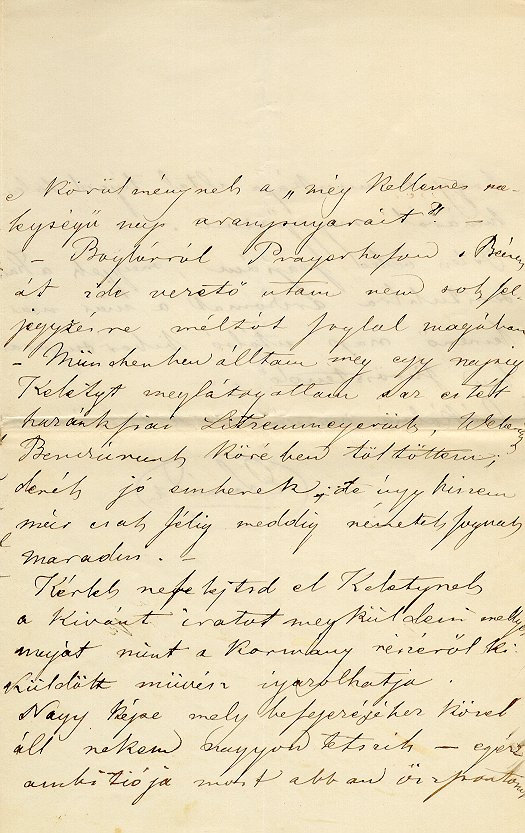 Körülménynek a „még kellemes
nap aranysugarait" —
— Boglárról Pragerhofon, Bécsen
át ide vezető utam nem sok fel
jegyzésre méltót foglal magában
— Münchenben álltam meg egy napig
Keletyt meglátogattam s az estét
hazánkfiai Litzenmeyerünk,
Benczúrunk körében töltöttem;
derék jó emberek, de úgy hiszem
már csak félig meddig németek fognak
maradni. —
Kérlek ne felejtsd el Keletynek
a kivánt iratot megküldeni
magát mint a kormány részéről ki
küldött művész igazolhatja.
Nagy képe mely befejezéséhez közel
áll nekem nagyon tetszik — egész
ambitiója most abban